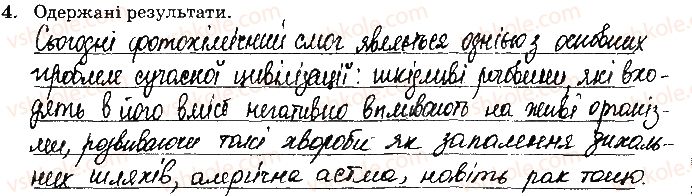 4. Одержані результати.
Сьогодні фотохімічний смог являється однією з основних
проблем сучасної цивілізації: шкідливі речовини, які вхо-
дять в його вміст негативно впливають на живі організ-
ми, розвиваючи такі хвороби як запалення дихаль-
них шляхів, алергічна астма, навіть рак тощо.